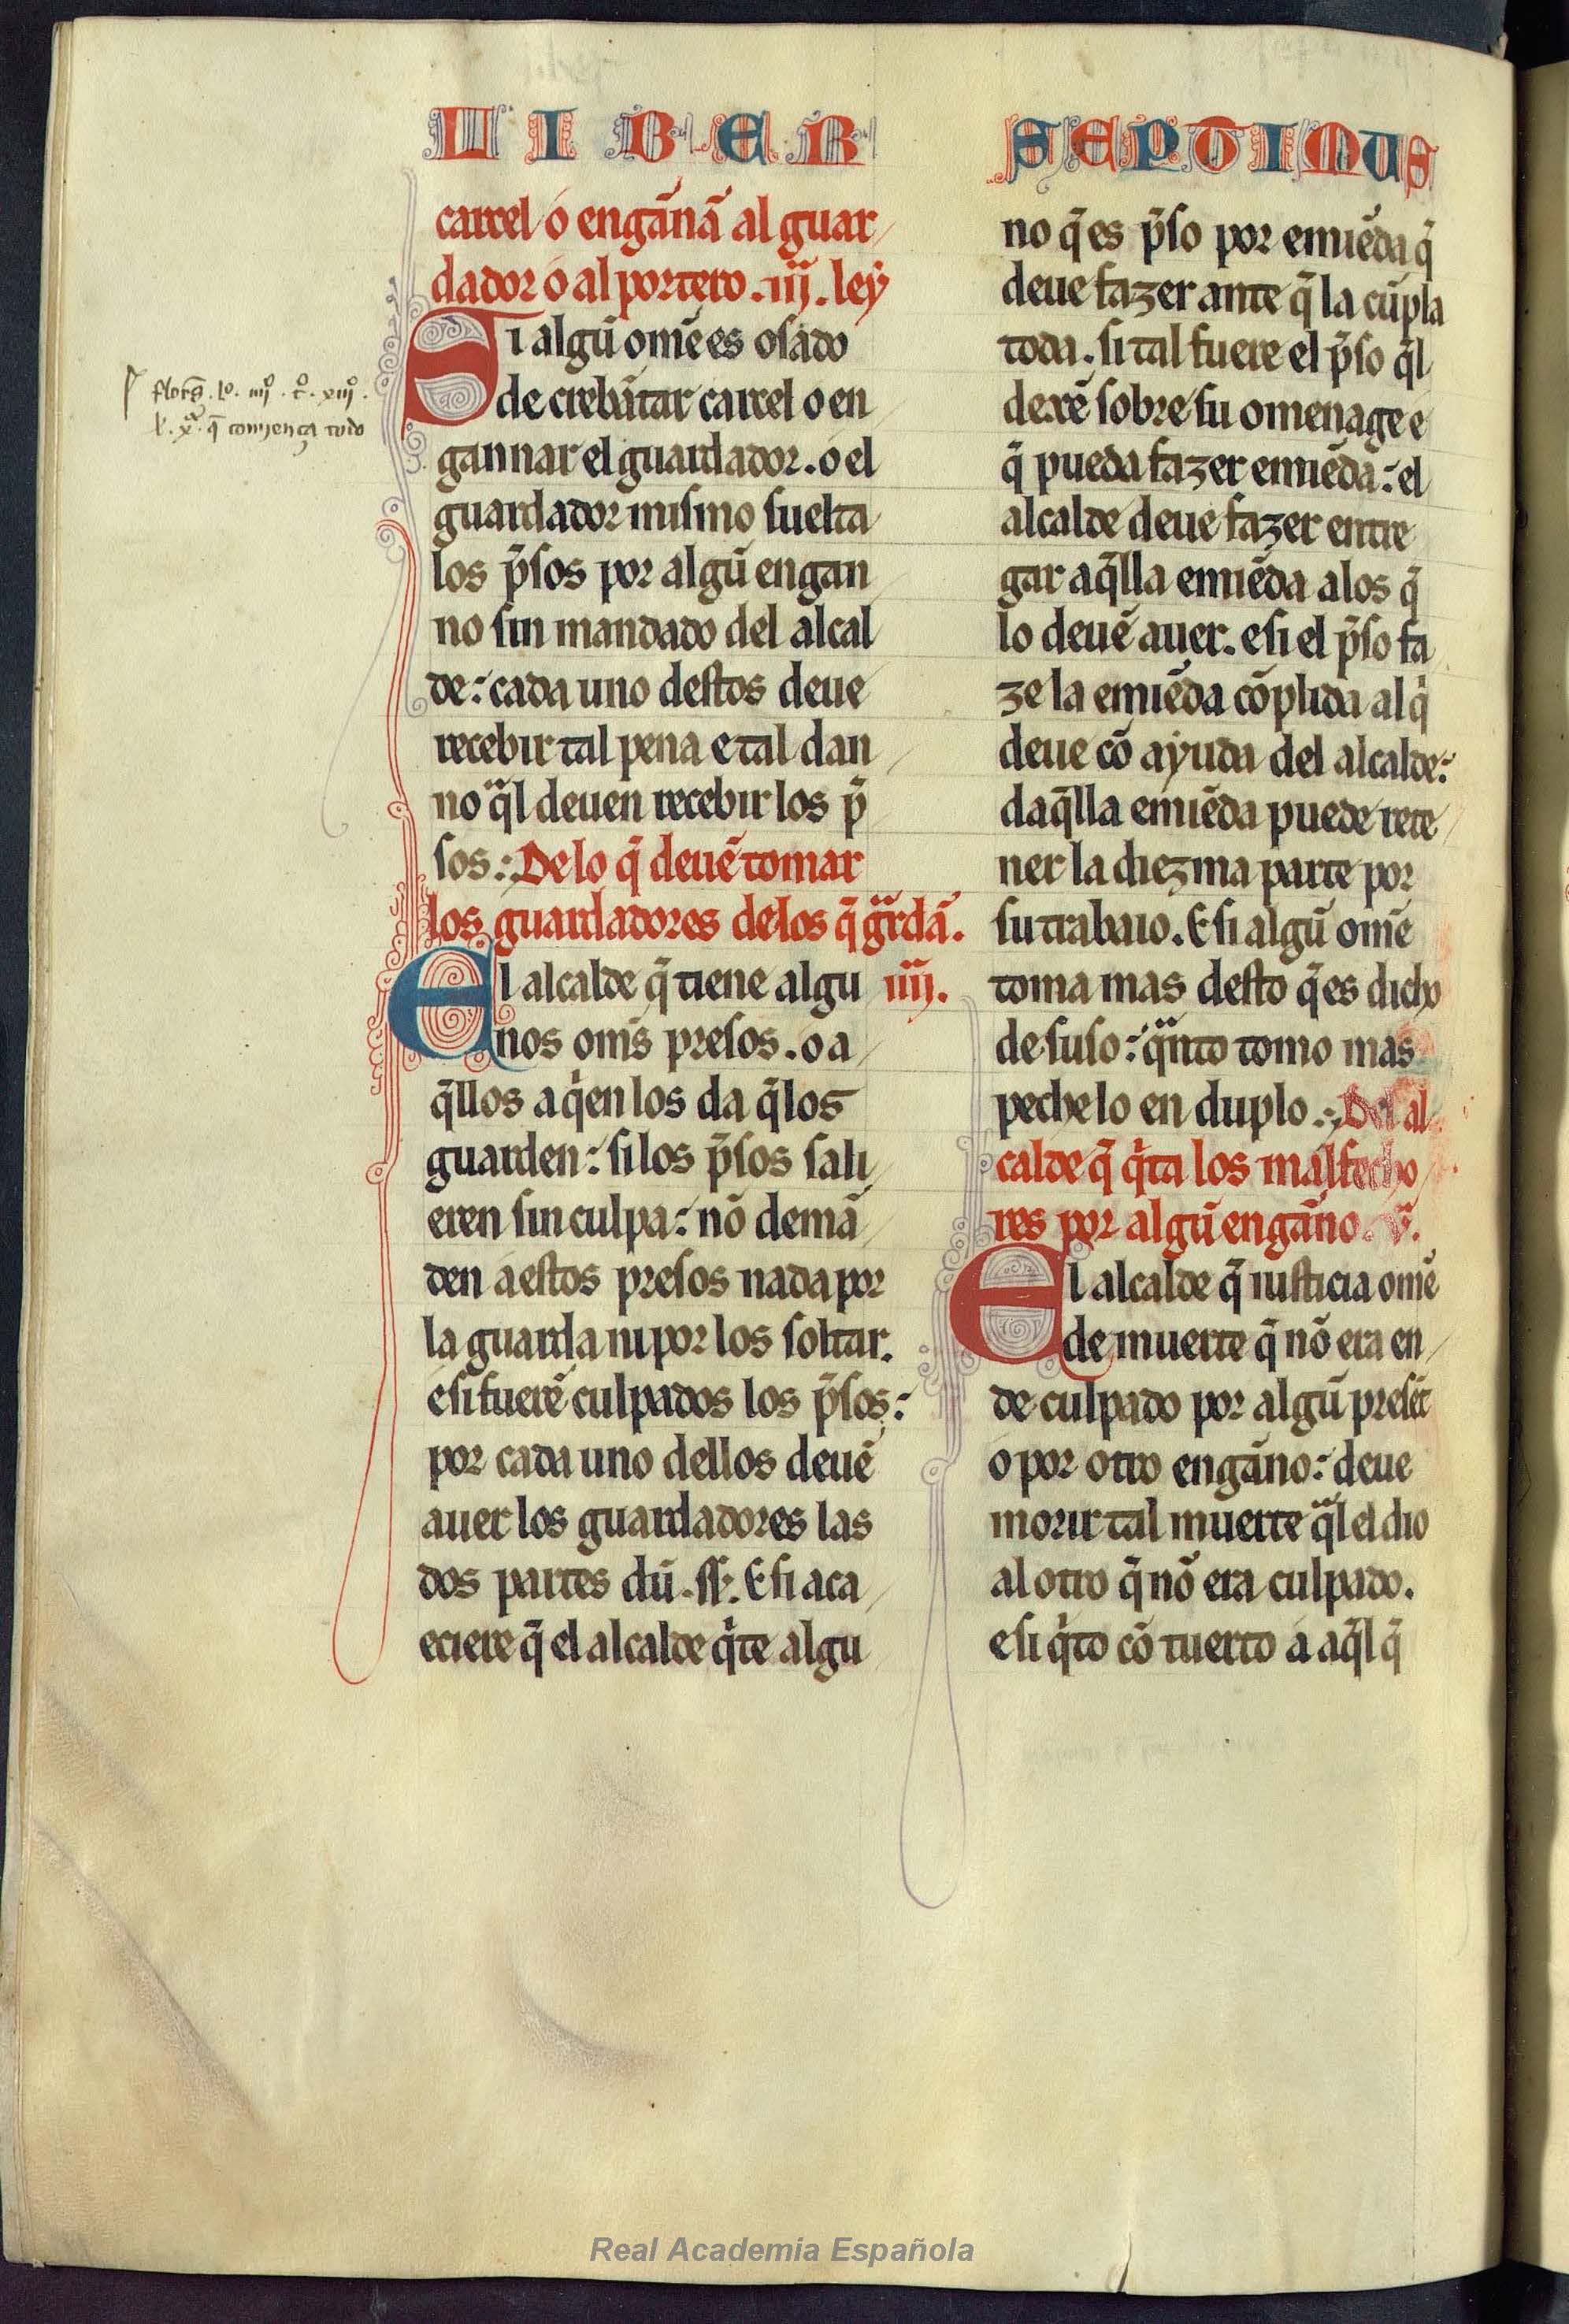 LIBER SEPTIMUS
carcel o engãnã al guar
dador o al portero .iij. ley
Si algũ omẽ es osado
de crebãtar carcel o en
gannar el guardador. o el
guardador mismo suelta
los p̃sos por algũ engan
no sin mandado del alcal
de: cada uno destos deue
recebir tal pena e tal dan
no q̃l deuen recebir los p̃
sos: De lo q̃ deuẽ tomar
los guardadores de los q̃ gͣrdã.
El alcalde q̃ tiene algu iiij.
nos oms̃ presos. o a
q̃llos a qͥen los da q̃ los
guarden: si los p̃sos sali
eren sin culpa: nõ demã
den a estos presos nada por
la guarda ni por los soltar.
e si fuerẽ culpados los p̃sos:
por cada uno dellos deuẽ
auer los guardadores las
dos partes dũ .ss̃. E si aca
eciere q̃ el alcalde qͥte algu
no q̃ es p̃so por emiẽda q̃
deue fazer ante q̃ la cũpla
toda. si tal fuere el p̃so q̃l
dexẽ sobre su omenage e
q̃ pueda fazer emiẽda: el
alcalde deue fazer entre
gar aq̃lla emiẽda a los q̃
lo deuẽ auer. e si el p̃so fa
ze la emiẽda cõplida al qͥ
deue cõ ayuda del alcalde:
daq̃lla emiẽda puede rete
ner la diezma parte por
su trabaio. E si algũ omẽ
toma mas desto q̃ es dicho
de suso: qͣnto tomo mas
peche lo en duplo: Del al
calde q̃ qͥta los malfecho
res por algũ engãno. v.
El alcalde q̃ iusticia omẽ
de muerte q̃ nõ era en
de culpado por algũ presẽt
o por otro engãno: deue
morir tal muerte qͣl el dio
al otro q̃ nõ era culpado.
e si qͥto cõ tuerto a aq̃l q̃
.lº. iiijº .t̃º. xiijº.
l. xª. q̃ comjença todo
Real Academia Española